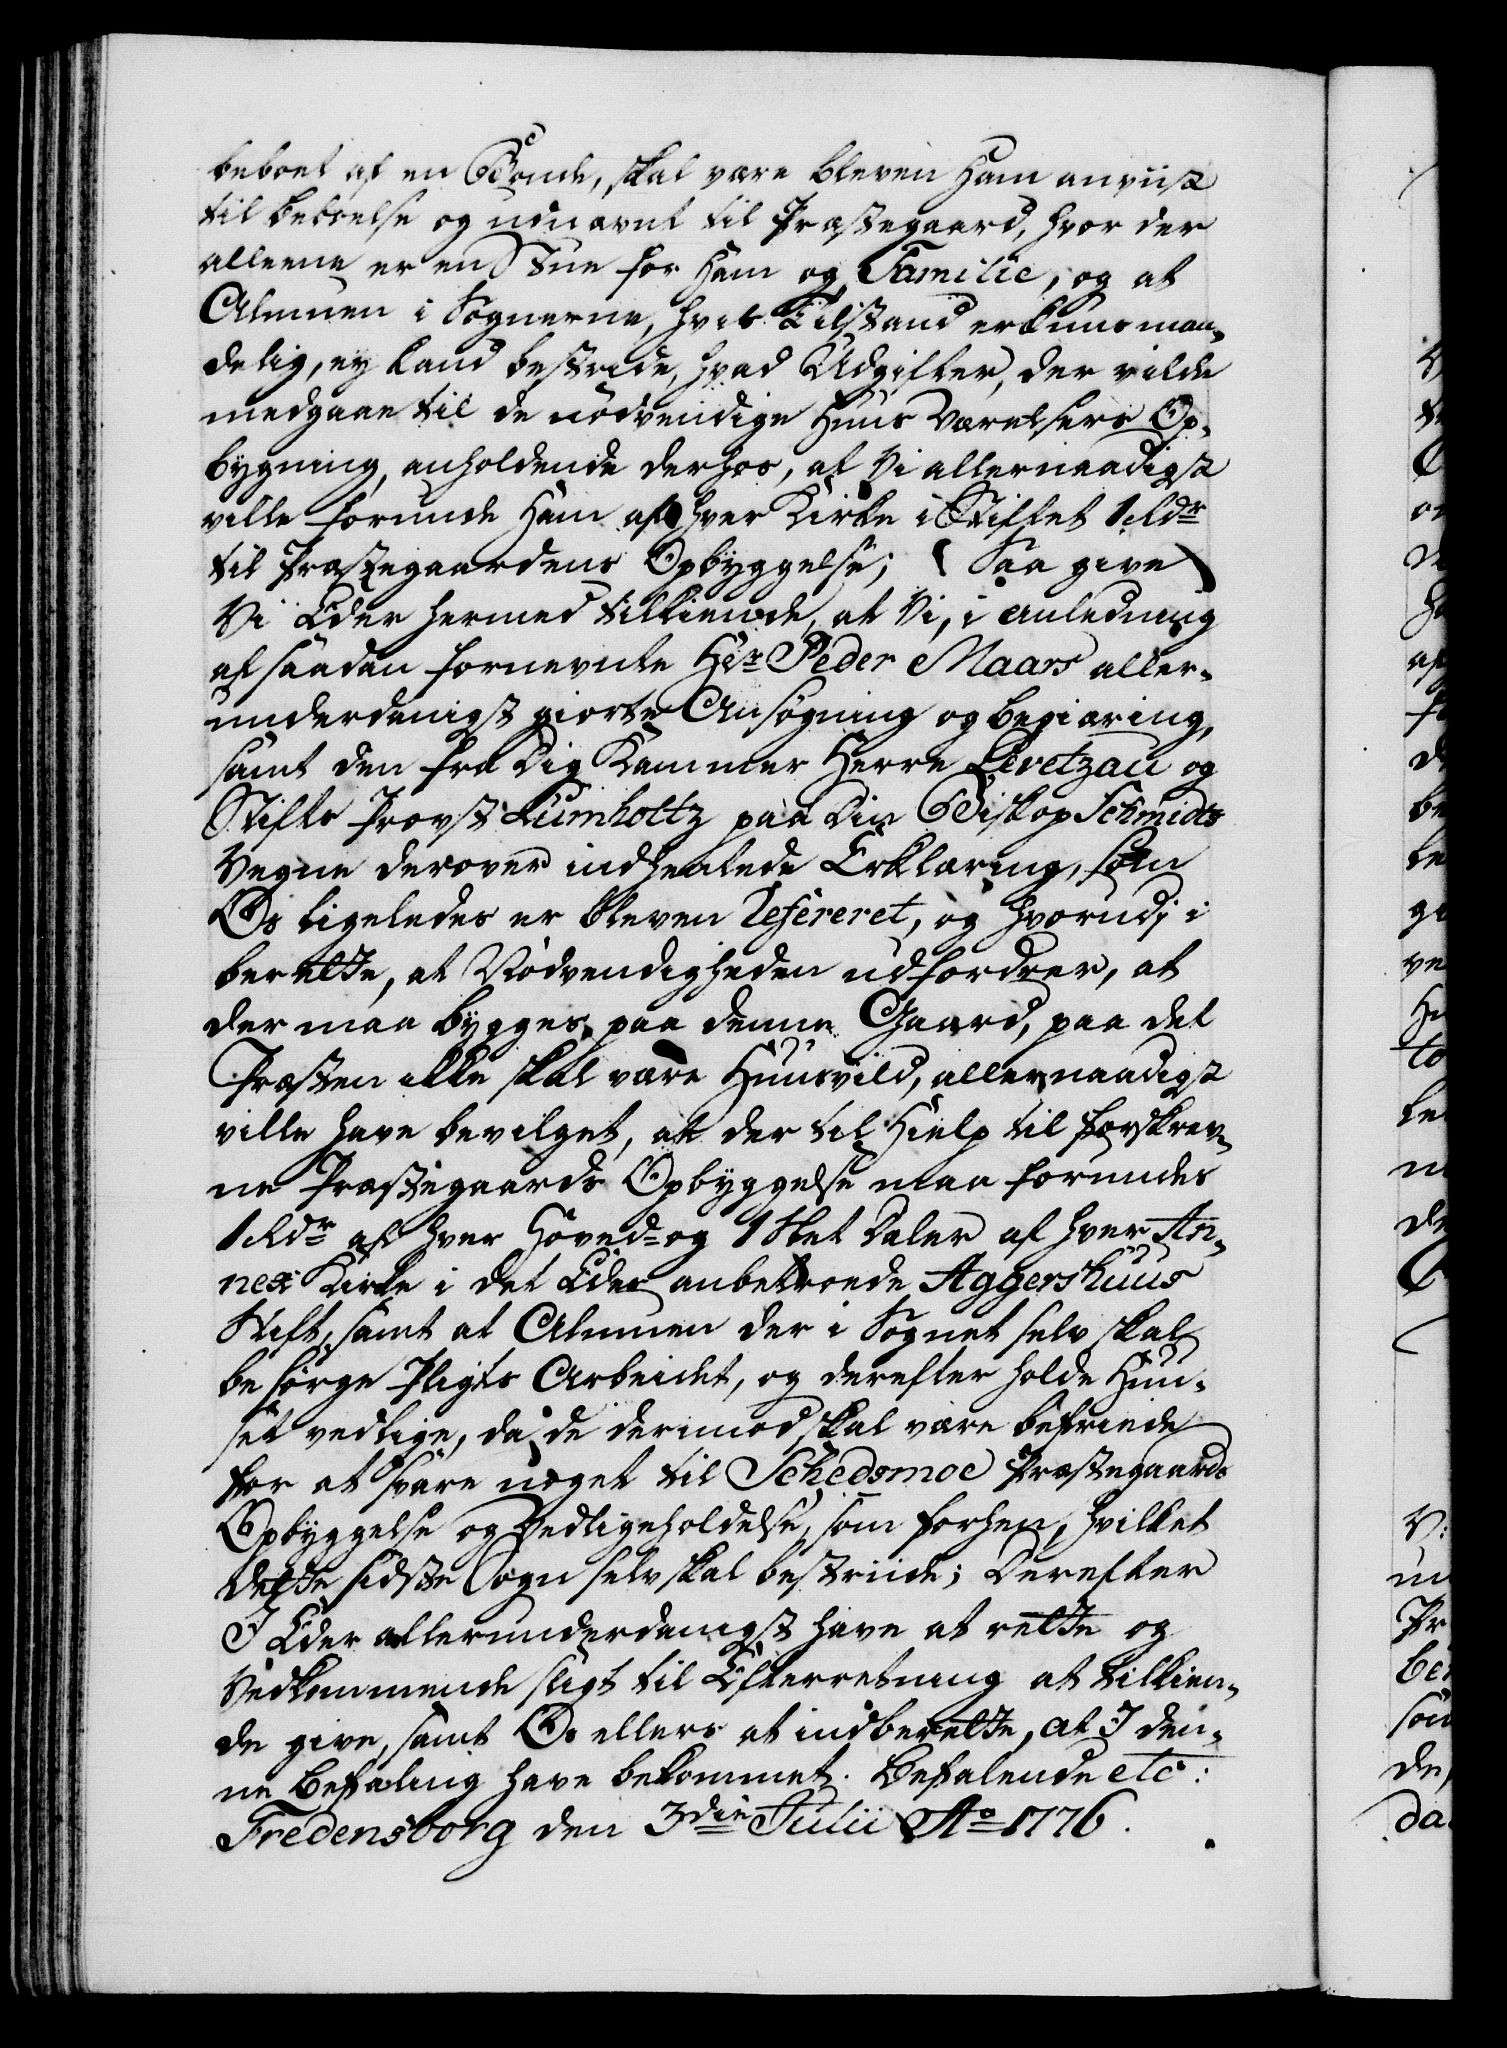 beboet af en Bonde, skal være bleven ham anviist
til beboelse og udnævnt til Præstegaard, hvor der
alleene er en Stue for ham og Familie, og at
Almuen i Sognerne, hvis Tilstand er kuns maa-
delig, ey kand bestride, hvad Udgifter, der vilde
medgaae til de nödvendige Huus Værelsers Op-
bygning, anholdende derhos, at Vi allernaadigst
ville forunde ham af hver Kirke i Stiftet 1 Rdr
til Præstegaardens Opbyggelse; Saa give
Vi Eder hermed tilkiende, at Vi, i anledning
af saadan fornevnte Hr Peder Maars aller-
underdanigst giorte Ansøgning og begiæring,
samt den fra Dig Kammer Herre Levetzau og
Stifts Provst Lumholtz paa Din Biskop Schmidts
Vegne derover indhentede Erklæring, som
Os ligeledes er bleven Refereret, og hvorudj i
berette, at Nödvendigheden udfordrer, at
der maa bygges paa denne Gaard, paa det
Præsten ikke skal være Huusvild, allernaadigst
ville have bevilget, at der til Hielp til forskrev-
ne Præstegaards Opbyggelse maa forundes
1 Rdr af hver Hoved- og 1 Slet Daler af hver An-
nex Kirke i det Eder anbetroede Aggershuus
Stift, samt at Almuen der i Sognet selv skal
besörge Pligts Arbeidet, og derefter holde Huu-
set vedlige, da de derimod skal være befriede
for at svare noget til Schedsmoe Præstegaards
Opbyggelse og Vedligeholdelse, som forhen, hvilket
dette sidste Sogn selv skal bestriide; Derefter
I Eder allerunderdanigst have at rette og
Vedkommende sligt til Efterretning at tilkien-
de give, samt Os ellers at indberette, at I den-
ne Befaling have bekommet. Befalende etc:
Fredensborg den 3die Julii Ao 1776.